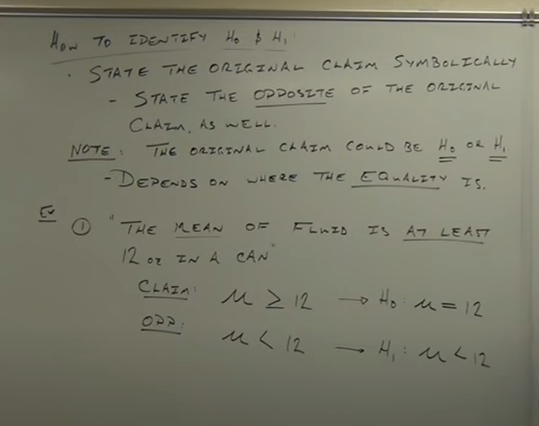 HOW TO IDENTIFY H₀ & H₁:
· STATE THE ORIGINAL CLAIM SYMBOLICALLY
- STATE THE OPPOSITE OF THE ORIGINAL
CLAIM, AS WELL.
NOTE: THE ORIGINAL CLAIM COULD BE H₀ OR H₁
- DEPENDS ON WHERE THE EQUALITY IS.
Ex ① "THE MEAN OF FLUID IS AT LEAST
12 oz IN A CAN"
CLAIM: μ ≥ 12 → H₀: μ = 12
OPP: μ < 12 → H₁: μ < 12